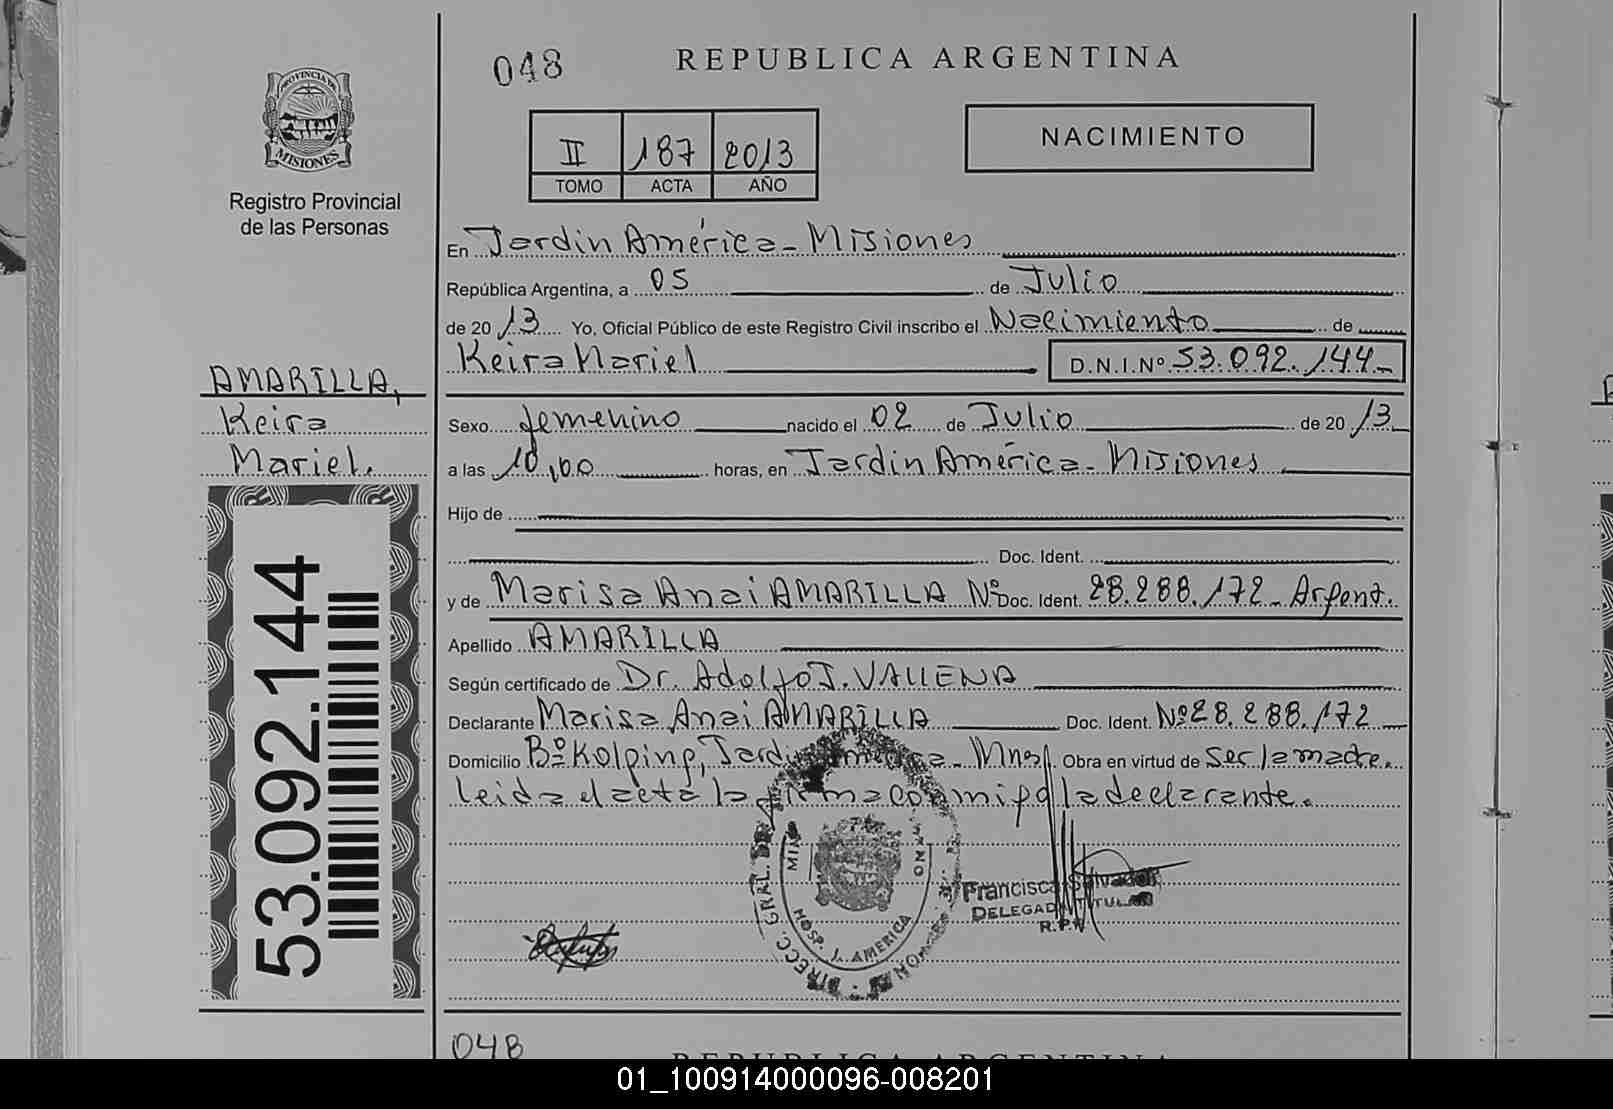 048
REPUBLICA ARGENTINA
PROVINCIA DE
MISIONES
Registro Provincial
de las Personas
II 187 2013
TOMO ACTA AÑO
NACIMIENTO
En Jardin América - Misiones
República Argentina, a 05 de Julio
de 2013 Yo, Oficial Público de este Registro Civil inscribo el Nacimiento de
Keira Mariel D.N.I.Nº 53.092.144.-
AMARILLA,
Keira
Mariel.
53.092.144
Sexo femenino nacido el 02 de Julio de 2013
a las 10,00 horas, en Jardin América - Misiones
Hijo de
Doc. Ident.
y de Marisa Anai AMARILLA Nº Doc. Ident. 28.288.172 - Argent.
Apellido AMARILLA
Según certificado de Dr. Adolfo J. VALLENA
Declarante Marisa Anai AMARILLA Doc. Ident. Nº 28.288.172
Domicilio Bº Kolping, Jardin América - Mnes. Obra en virtud de ser la madre.
leida el acta la firma conmigo la declarante.
DIRECC. GRAL. DE
HOSP. J. AMERICA
Francisca Salvador
DELEGADA TITULAR
R.P.P
048
REPUBLICA ARGENTINA
01_100914000096-008201